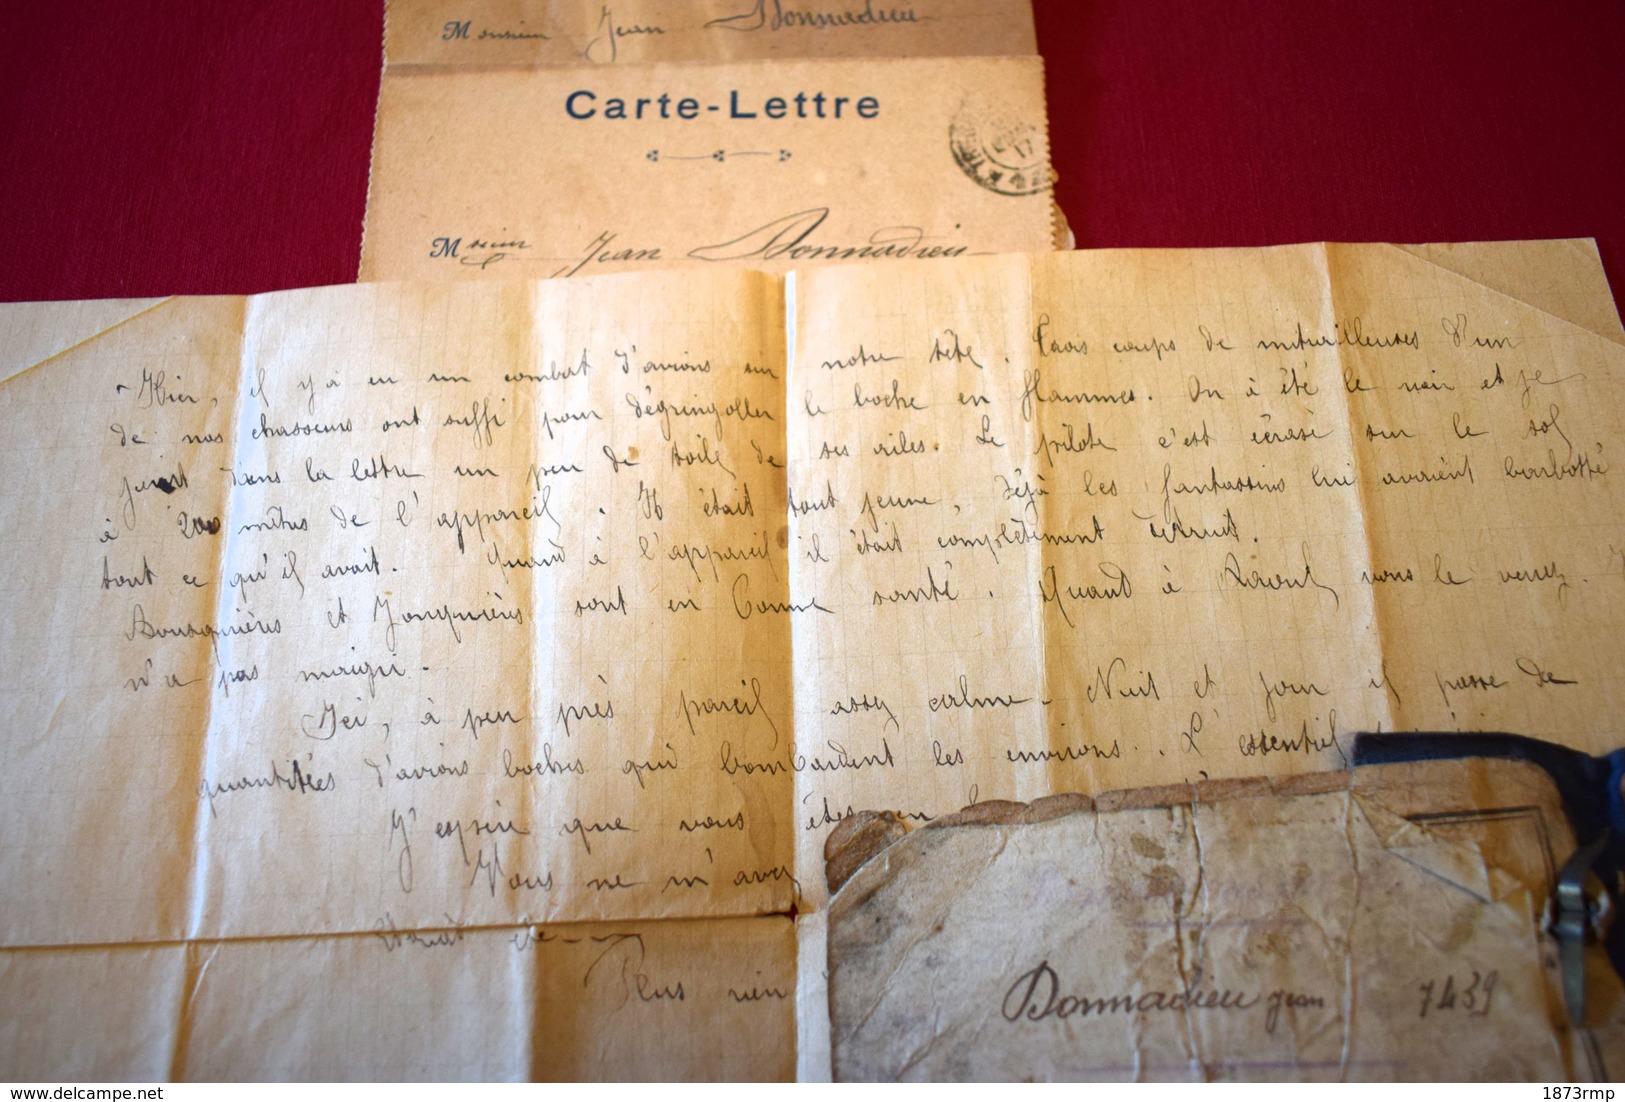 Monsieur Jean Bonnadieu
Carte-Lettre
Msieur Jean Bonnadieu
Hier, il y à eu un combat d'avions sur notre tête. Trois coups de mitrailleuses d'un
de nos chasseurs ont suffi pour dégringoller le boche en flammes. On à été le voir et je
joint dans la lettre un peu de toile de ses ailes. Le pilote c'est écrasé sur le sol
à 200 mêtres de l'appareil. Il était tout jeune, déjà les fantassins lui avaient barbotté
tout ce qu'il avait. Quand à l'appareil il était complètement détruit.
Bousquières et Jonquières sont en bonne santé. Quand à Raoul vous le verrez. Il
n'a pas maigri.
Ici, à peu près pareil assez calme. Nuit et jour il passe de
quantitées d'avions boches qui bombardent les environs. L'essentiel
J'espère que vous êtes en
Vous ne m'avez
était été
Plus rien
Bonnadieu Jean 7439
delcampe.net
1873rmp